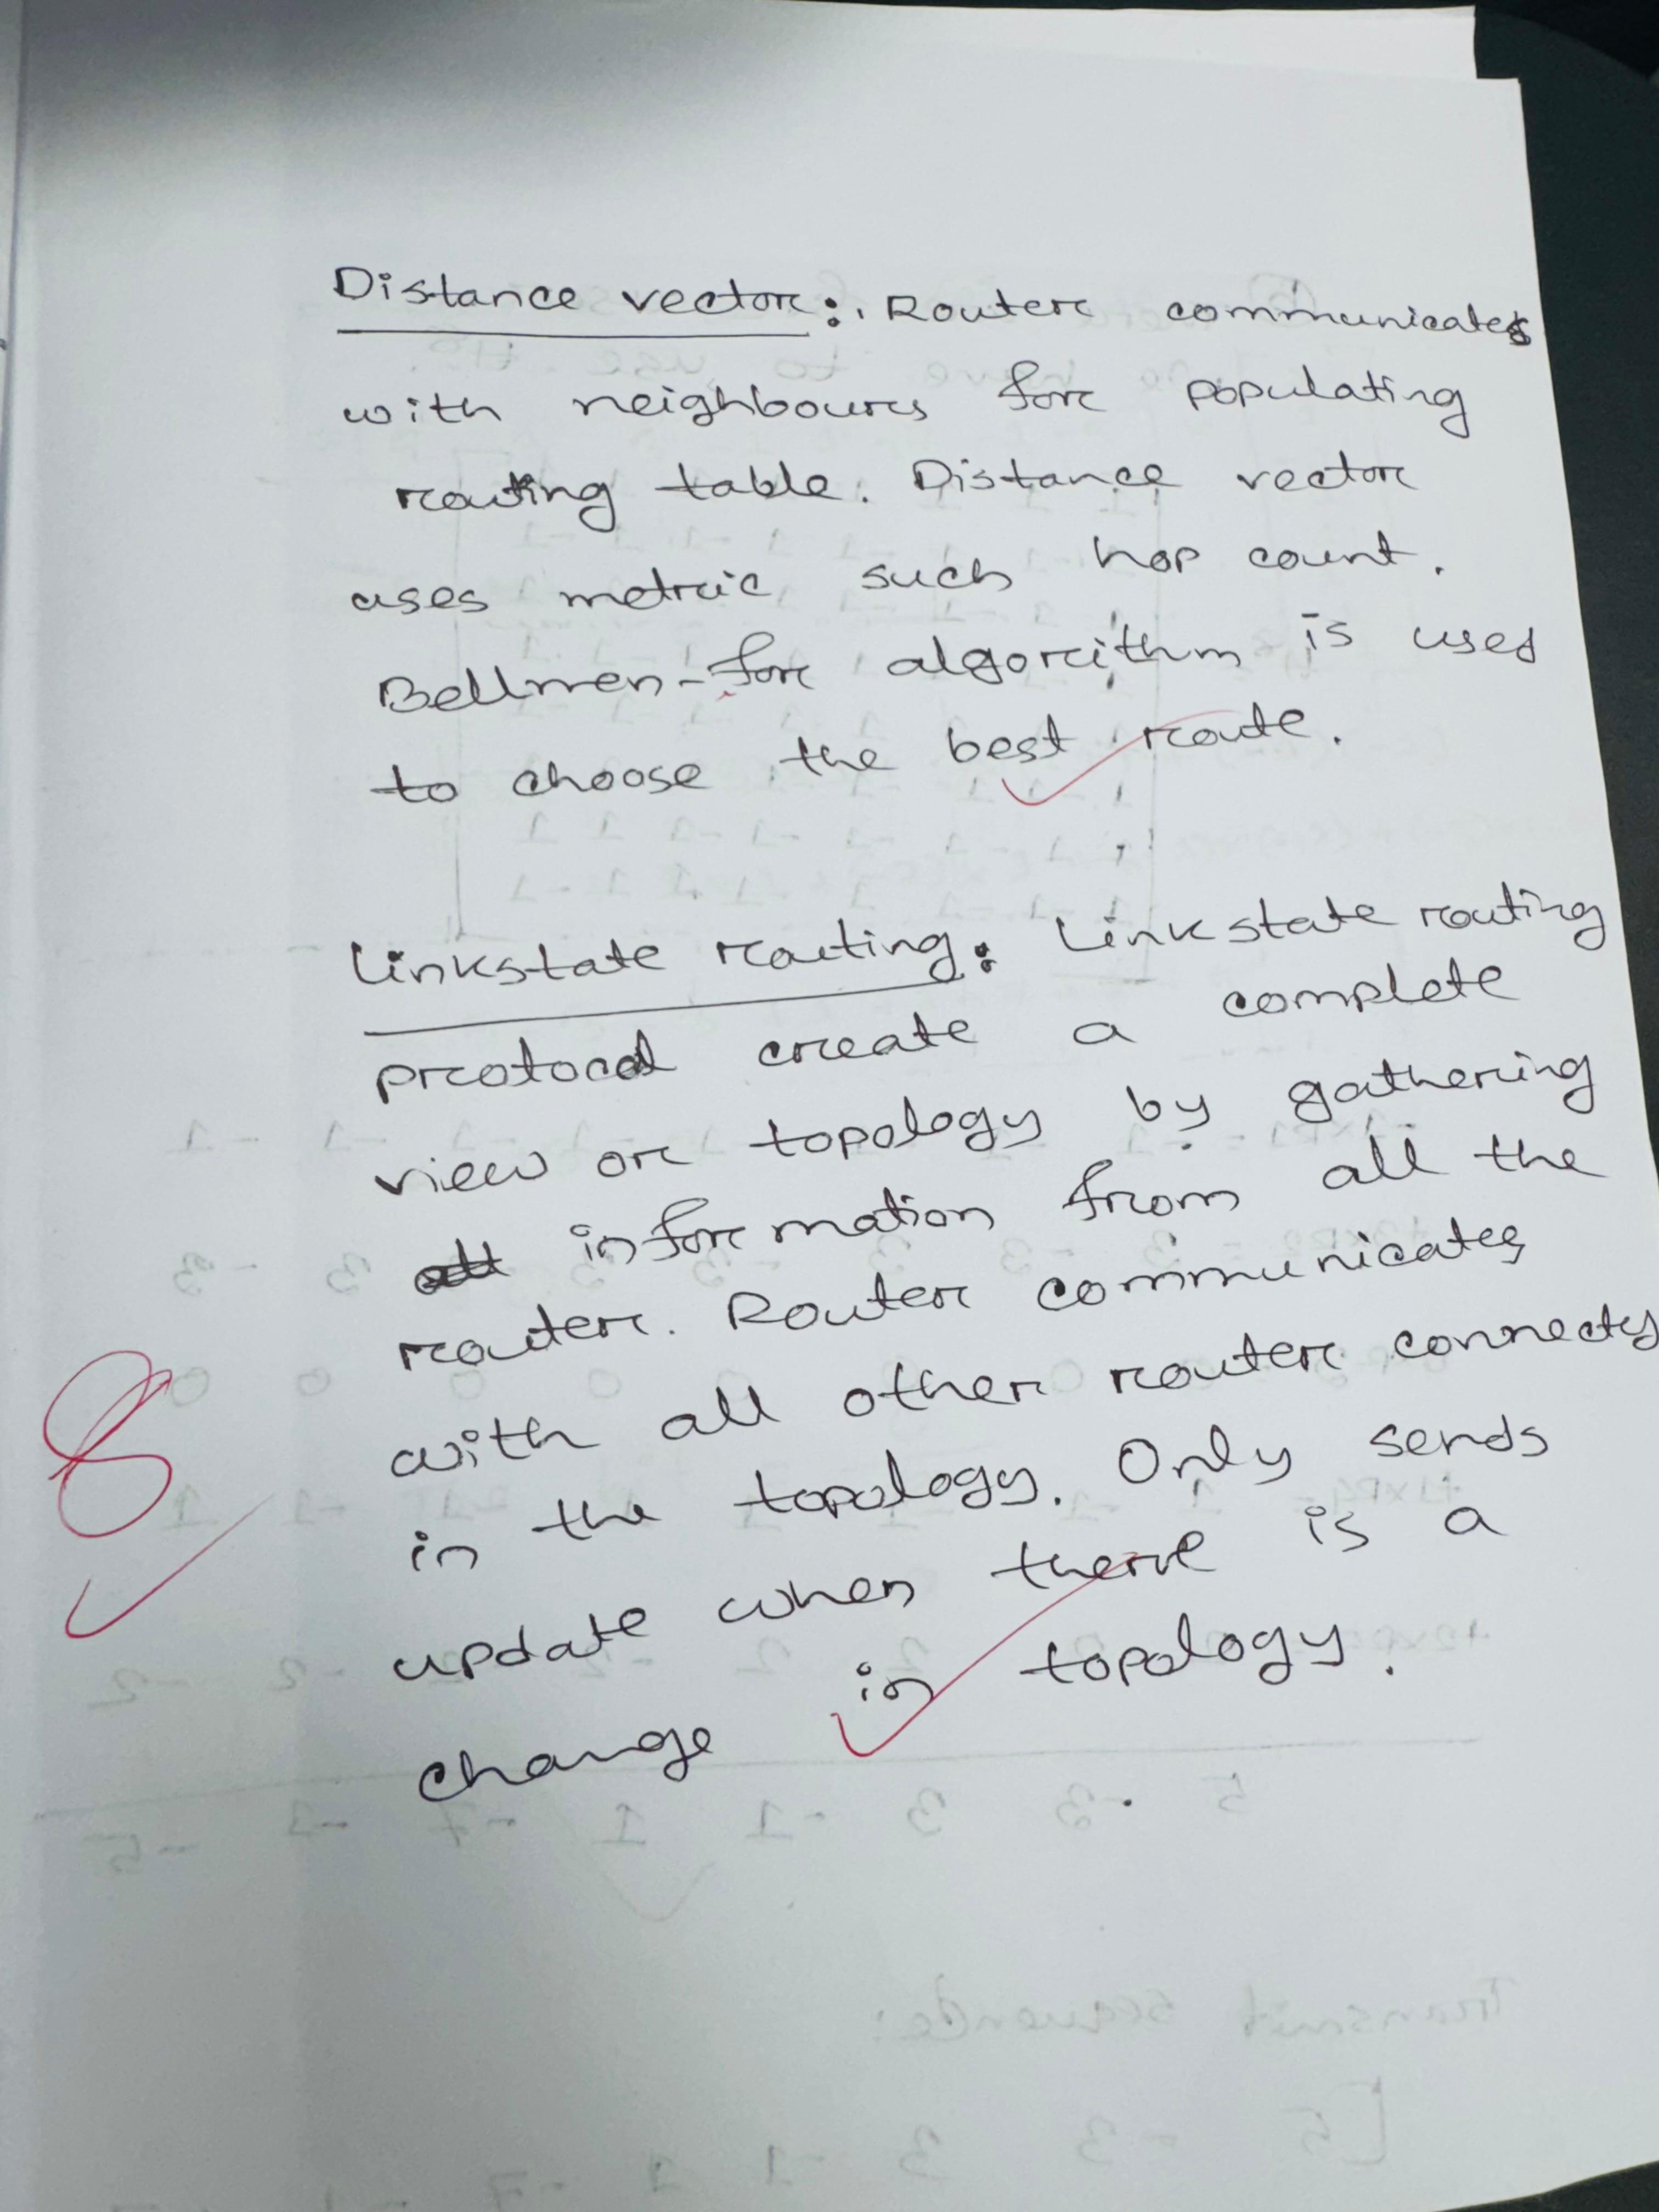 Distance vector: Router communicates
with neighbours for populating
routing table. Distance vector
uses metric such hop count.
Bellmen-for algorithm is used
to choose the best route.
Linkstate routing: Linkstate routing
protocol create a complete
view or topology by gathering
information from all the
router. Router communicates
with all other router connects
in the topology. Only sends
8
update when there is a
change in topology.